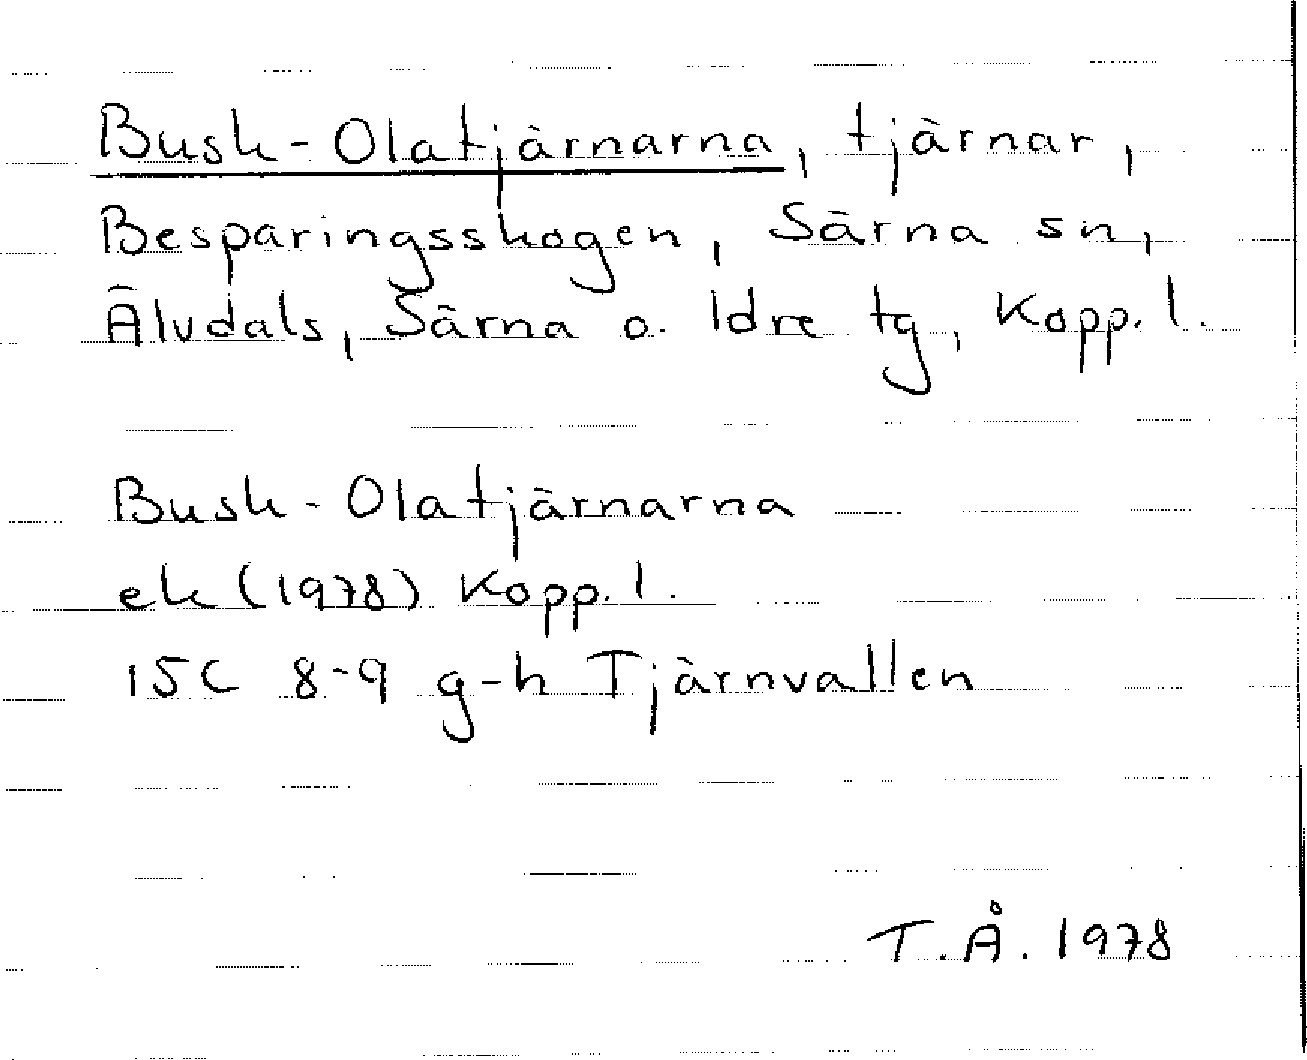 Busk-Olatjärnarna, tjärnar,
Besparingsskogen, Särna sn,
Älvdals, Särna o. Idre tg, Kopp. l.
Busk-Olatjärnarna
ek (1978) Kopp. l.
15C 8-9 g-h Tjärnvallen
T.Å. 1978